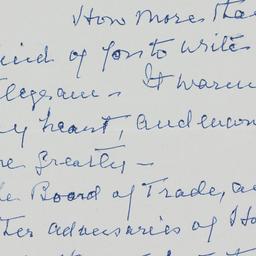 How more tha
ind of you to write
elegram - It warm
y heart, and encou
me greatly -
he Board of Trade, a
ther adversaries of Ho